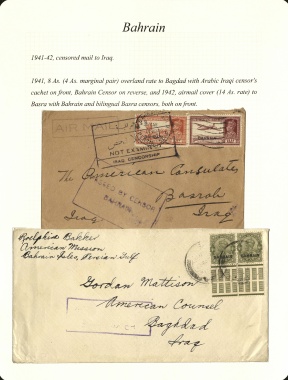 Bahrain
1941-42, censored mail to Iraq
1941, 8 As. (4 As. marginal pair) overland rate to Bagdad with Arabic Iraqi censor's
cachet on front, Bahrain Censor on reverse, and 1942, airmail cover (14 As. rate) to
Basra with Bahrain and bilingual Basra censors, both on front.
AIR MAIL
NOT EXAMINED
IRAQ CENSORSHIP
The American Consulate,
PASSED BY CENSOR
BAHRAIN
Basrah
Iraq
Iraq
Bakker
American Mission
Bahrain Isles, Persian Gulf
BAHRAIN
BAHRAIN
Gordan Mattison
American Counsel
Baghdad
Iraq